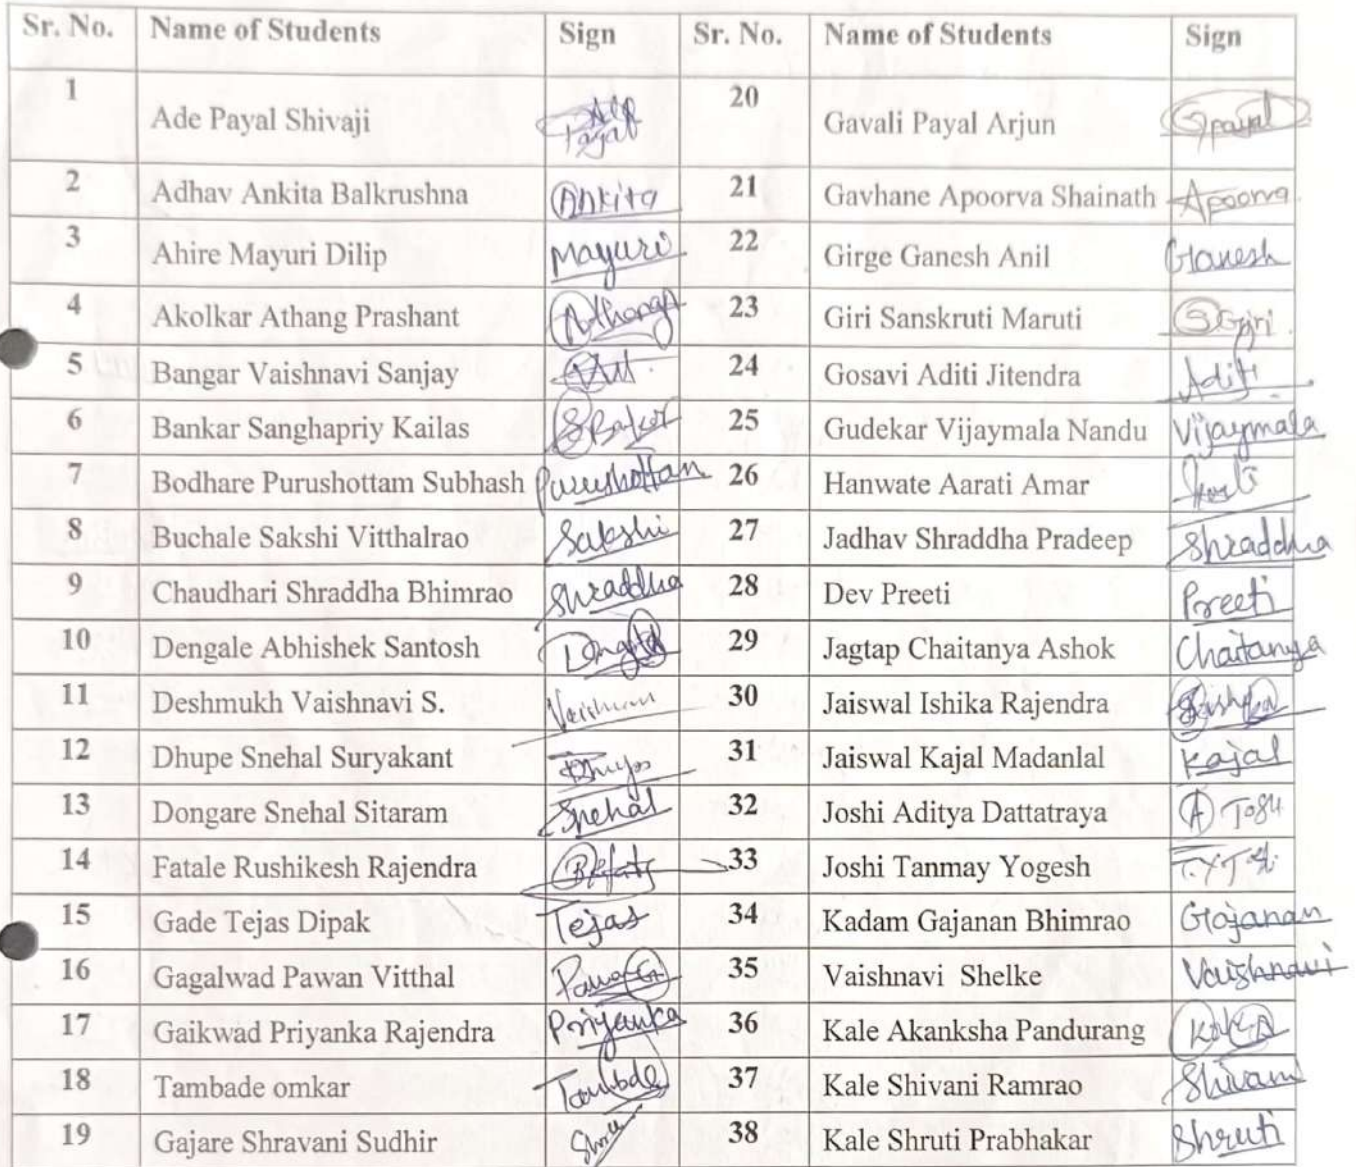 Sr. No. Name of Students Sign Sr. No. Name of Students Sign
1 Ade Payal Shivaji Ade Payal 20 Gavali Payal Arjun Gpayal
2 Adhav Ankita Balkrushna Ankita 21 Gavhane Apoorva Shainath Apoorva
3 Ahire Mayuri Dilip Mayuri 22 Girge Ganesh Anil Ganesh
4 Akolkar Athang Prashant Athang 23 Giri Sanskruti Maruti SGiri
5 Bangar Vaishnavi Sanjay 24 Gosavi Aditi Jitendra Aditi
6 Bankar Sanghapriy Kailas 25 Gudekar Vijaymala Nandu Vijaymala
7 Bodhare Purushottam Subhash Purushottam 26 Hanwate Aarati Amar
8 Buchale Sakshi Vitthalrao Sakshi 27 Jadhav Shraddha Pradeep Shraddha
9 Chaudhari Shraddha Bhimrao Shraddha 28 Dev Preeti Preeti
10 Dengale Abhishek Santosh 29 Jagtap Chaitanya Ashok Chaitanya
11 Deshmukh Vaishnavi S. 30 Jaiswal Ishika Rajendra
12 Dhupe Snehal Suryakant 31 Jaiswal Kajal Madanlal Kajal
13 Dongare Snehal Sitaram Snehal 32 Joshi Aditya Dattatraya
14 Fatale Rushikesh Rajendra 33 Joshi Tanmay Yogesh
15 Gade Tejas Dipak Tejas 34 Kadam Gajanan Bhimrao Gajanan
16 Gagalwad Pawan Vitthal 35 Vaishnavi Shelke Vaishnavi
17 Gaikwad Priyanka Rajendra Priyanka 36 Kale Akanksha Pandurang
18 Tambade omkar Tambde 37 Kale Shivani Ramrao Shivani
19 Gajare Shravani Sudhir 38 Kale Shruti Prabhakar Shruti